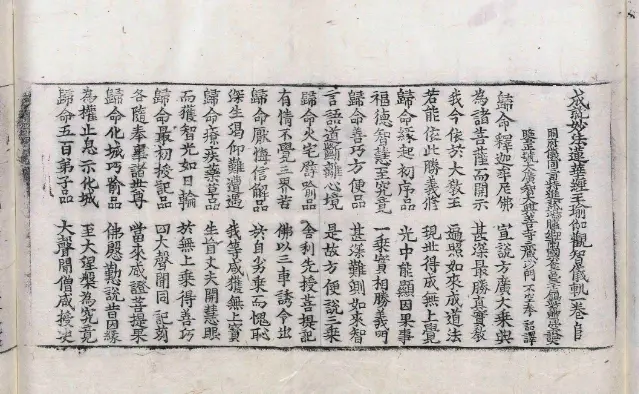 成就妙法蓮華經王瑜伽觀智儀軌一卷
開府儀同三司特進試鴻臚卿肅國公食邑三千戶賜紫贈司空諡大
鑒正號大廣智大興善寺三藏沙門 不空奉 詔譯
歸命釋迦牟尼佛 宣說方廣大乘典
為諸菩薩而開示 甚深最勝真實教
我今依於大教王 遍照如來成道法
若能依此勝義修 現世得成無上覺
歸命緣起初序品 光中能顯因果事
福德智慧至究竟 一乘實相勝義門
歸命善巧方便品 甚深難測如來智
言語道斷離心境 是故方便說三乘
歸命火宅譬喻品 舍利先授菩提記
有情不覺三界苦 佛以三車誘令出
歸命厭悔信解品 於自劣乘而愧恥
深生渴仰難遭遇 我等咸獲無上寶
歸命療疾藥草品 生盲丈夫開慧眼
而獲智光如日輪 於無上乘得善巧
歸命最初授記品 四大聲聞同記刻
各隨奉事諸世尊 當來咸證菩提果
歸命化城巧喻品 佛愍懃說昔因緣
為權止息示化城 至大涅槃為究竟
歸命五百弟子品 大聲聞僧咸授決